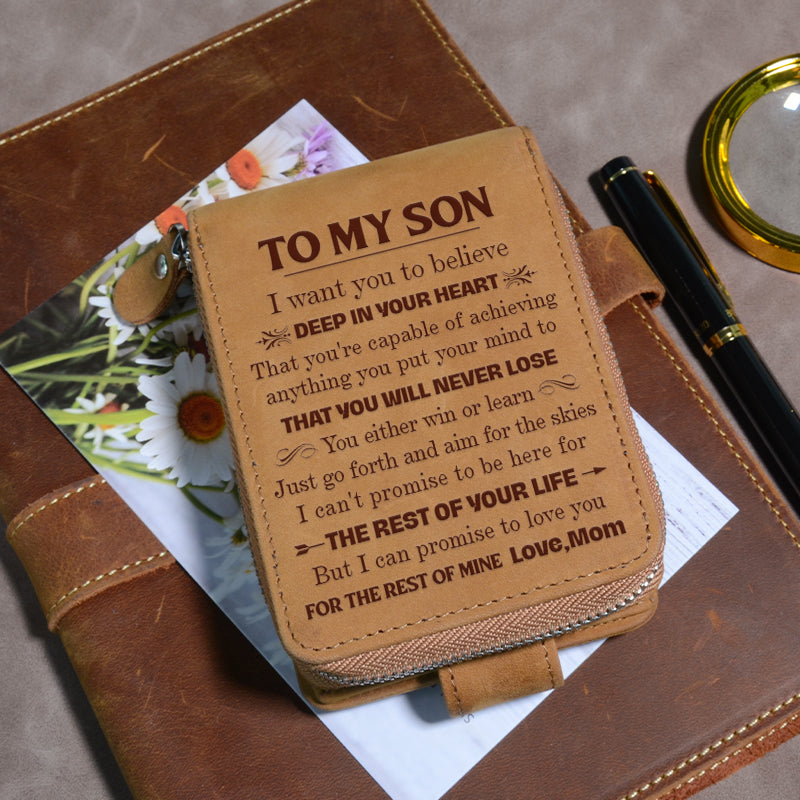 TO MY SON
I want you to believe
DEEP IN YOUR HEART
That you're capable of achieving
anything you put your mind to
THAT YOU WILL NEVER LOSE
You either win or learn
Just go forth and aim for the skies
I can't promise to be here for
THE REST OF YOUR LIFE
But I can promise to love you
FOR THE REST OF MINE Love,Mom